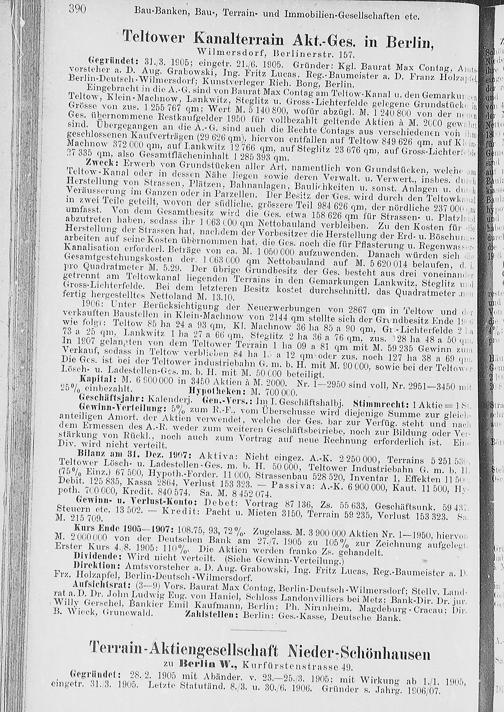 390
Bau-Banken, Bau-, Terrain- und Immobilien-Gesellschaften etc.
Teltower Kanalterrain Akt.-Ges. in Berlin,
Wilmersdorf, Berlinerstr. 157.
Gegründet: 31./3. 1905; eingetr. 21./6. 1905. Gründer: Kgl. Baurat Max Contag,
vorsteher a. D. Aug. Grabowski, Ing. Fritz Lucas, Reg.-Baumeister a. D. Franz Holzapfel,
Berlin-Deutsch-Wilmersdorf; Kunstverleger Rich. Bong, Berlin.
Eingebracht in die A.-G. sind von Baurat Max Contag am Teltow-Kanal u. den Gemarkungen
Teltow, Klein-Machnow, Lankwitz, Steglitz u. Gross-Lichterfelde gelegene Grundstücke in
Grösse von zus. 1 255 767 qm; Wert M. 5 140 800, wofür abzügl. M. 1 240 800 von der neuen
Ges. übernommene Restkaufgelder 1950 für vollbezahlt geltende Aktien à M. 2000 gewährt
sind. Übergegangen an die A.-G. sind auch die Rechte Contags aus verschiedenen von ihm
geschlossenen Kaufverträgen (29 626 qm), hiervon entfallen auf Teltow 849 626 qm, auf Kl.-
Machnow 372 000 qm, auf Lankwitz 12 766 qm, auf Steglitz 23 676 qm, auf Gross-Lichterfelde
27 335 qm, also Gesamtflächeninhalt 1 285 393 qm.
Zweck: Erwerb von Grundstücken aller Art, namentlich von Grundstücken, welche am
Teltow-Kanal oder in dessen Nähe liegen sowie deren Verwalt. u. Verwert., insbes. durch
Herstellung von Strassen, Plätzen, Bahnanlagen, Baulichkeiten u. sonst. Anlagen u. durch
Veräusserung im Ganzen oder in Parzellen. Der Besitz der Ges. wird durch den Teltowkanal
in zwei Teile geteilt, wovon der südliche, grössere Teil 984 626 qm, der nördliche 237 000 qm
umfasst. Von dem Gesamtbesitz wird die Ges. etwa 158 626 qm für Strassen- u. Platzland
abzutreten haben, sodass ihr 1 063 000 qm Nettobauland verbleiben. Zu den Kosten für die
Herstellung der Strassen hat, nachdem der Vorbesitzer die Herstellung der Erd- u. Böschungs-
arbeiten auf seine Kosten übernommen hat, die Ges. noch die für Pflasterung u. Regenwasser-
Kanalisation erforderl. Beträge von ca. M. 1 050 000 aufzuwenden. Danach würden sich die
Gesamtgestehungskosten der 1 063 000 qm Nettobauland auf M. 5 620 014 belaufen, d. i.
pro Quadratmeter M. 5.29. Der übrige Grundbesitz der Ges. besteht aus drei voneinander
getrennt am Teltowkanal liegenden Terrains in den Gemarkungen Lankwitz, Steglitz und
Gross-Lichterfelde. Bei dem letzteren Besitz kostet durchschnittl. das Quadratmeter
fertig hergestelltes Nettoland M. 13.10.
1906: Unter Berücksichtigung der Neuerwerbungen von 2867 qm in Teltow und der
verkauften Baustellen in Klein-Machnow von 2144 qm stellte sich der Grundbesitz Ende
wie folgt: Teltow 85 ha 24 a 93 qm, Kl. Machnow 36 ha 85 a 90 qm, Gr.-Lichterfelde 2 ha
73 a 25 qm, Lankwitz 1 ha 27 a 66 qm, Steglitz 2 ha 36 a 76 qm, zus. 128 ha 48 a 50 qm.
In 1907 gelangten von dem Teltower Terrain 1 ha 09 a 81 qm mit M. 59 235 Gewinn zum
Verkauf, sodass in Teltow verblieben 84 ha 1. a 12 qm oder zus. noch 127 ha 38 a 69 qm.
Die Ges. ist bei der Teltower Industriebahn G. m. b. H. mit M. 90 000, sowie bei der Teltower
Lösch- u. Ladestellen-Ges. m. b. H. mit M. 50 000 beteiligt.
Kapital: M. 6 900 000 in 3450 Aktien à M. 2000. Nr. 1—2950 sind voll, Nr. 2951—3450 mit
25% einbezahlt. Hypotheken: M. 700 000.
Geschäftsjahr: Kalenderj. Gen.-Vers.: Im I. Geschäftshalbj. Stimmrecht: 1 Aktie = 1 St.
Gewinn-Verteilung: 5% zum R.-F., vom Überschusse wird diejenige Summe zur gleich-
anteiligen Amort. der Aktien verwendet, welche der Ges. bar zur Verfüg. steht und nach
dem Ermessen des A.-R. weder zum weiteren Geschäftsbetriebe, noch zur Bildung oder Ver-
stärkung von Rückl., noch auch zum Vortrag auf neue Rechnung erforderlich ist. Eine
Div. wird nicht verteilt.
Bilanz am 31. Dez. 1907: Aktiva: Nicht eingez. A.-K. 2 250 000, Terrains 5 251
Teltower Lösch- u. Ladestellen-Ges. m. b. H. 50 000, Teltower Industriebahn G. m. b. H.
(75% Einz.) 67 500, Hypoth.-Forder. 11 000, Strassenbau 528 520, Inventar 1, Effekten 11
Debit. 125 835, Kassa 2864, Verlust 153 323. — Passiva: A.-K. 6 900 000, Kaut. 11 500, Hy-
poth. 700 000, Kredit. 840 574. Sa. M. 8 452 074.
Gewinn- u. Verlust-Konto: Debet: Vortrag 87 136, Zs. 55 633, Geschäftsunk. 59
Steuern etc. 13 502. — Kredit: Pacht u. Mieten 3150, Terrain 59 235, Verlust 153 323. Sa.
M. 215 709.
Kurs Ende 1905—1907: 108.75, 93, 72%. Zugelass. M. 3 900 000 Aktien Nr. 1—1950, hiervon
M. 2 000 000 von der Deutschen Bank am 27./7. 1905 zu 105% zur Zeichnung aufgelegt.
Erster Kurs 4./8. 1905: 110%. Die Aktien werden franko Zs. gehandelt.
Dividende: Wird nicht verteilt. (Siehe Gewinn-Verteilung.)
Direktion: Amtsvorsteher a. D. Aug. Grabowski, Ing. Fritz Lucas, Reg.-Baumeister a. D.
Frz. Holzapfel, Berlin-Deutsch-Wilmersdorf.
Aufsichtsrat: (3—9) Vors. Baurat Max Contag, Berlin-Deutsch-Wilmersdorf; Stellv. Land-
rat a. D. Dr. John Ludwig Eug. von Haniel, Schloss Landonvillers bei Metz; Bank-Dir. Dr. jur.
Willy Gerschel, Bankier Emil Kaufmann, Berlin; Ph. Nirnheim, Magdeburg-Cracau; Dir.
B. Wieck, Grunewald. Zahlstellen: Berlin: Ges.-Kasse, Deutsche Bank.
Terrain-Aktiengesellschaft Nieder-Schönhausen
zu Berlin W., Kurfürstenstrasse 49.
Gegründet: 28./2. 1905 mit Abänder. v. 23.—25./3. 1905; mit Wirkung ab 1./1. 1905,
eingetr. 31./3. 1905. Letzte Statutänd. 8./3. u. 30./6. 1906. Gründer s. Jahrg. 1906/07.